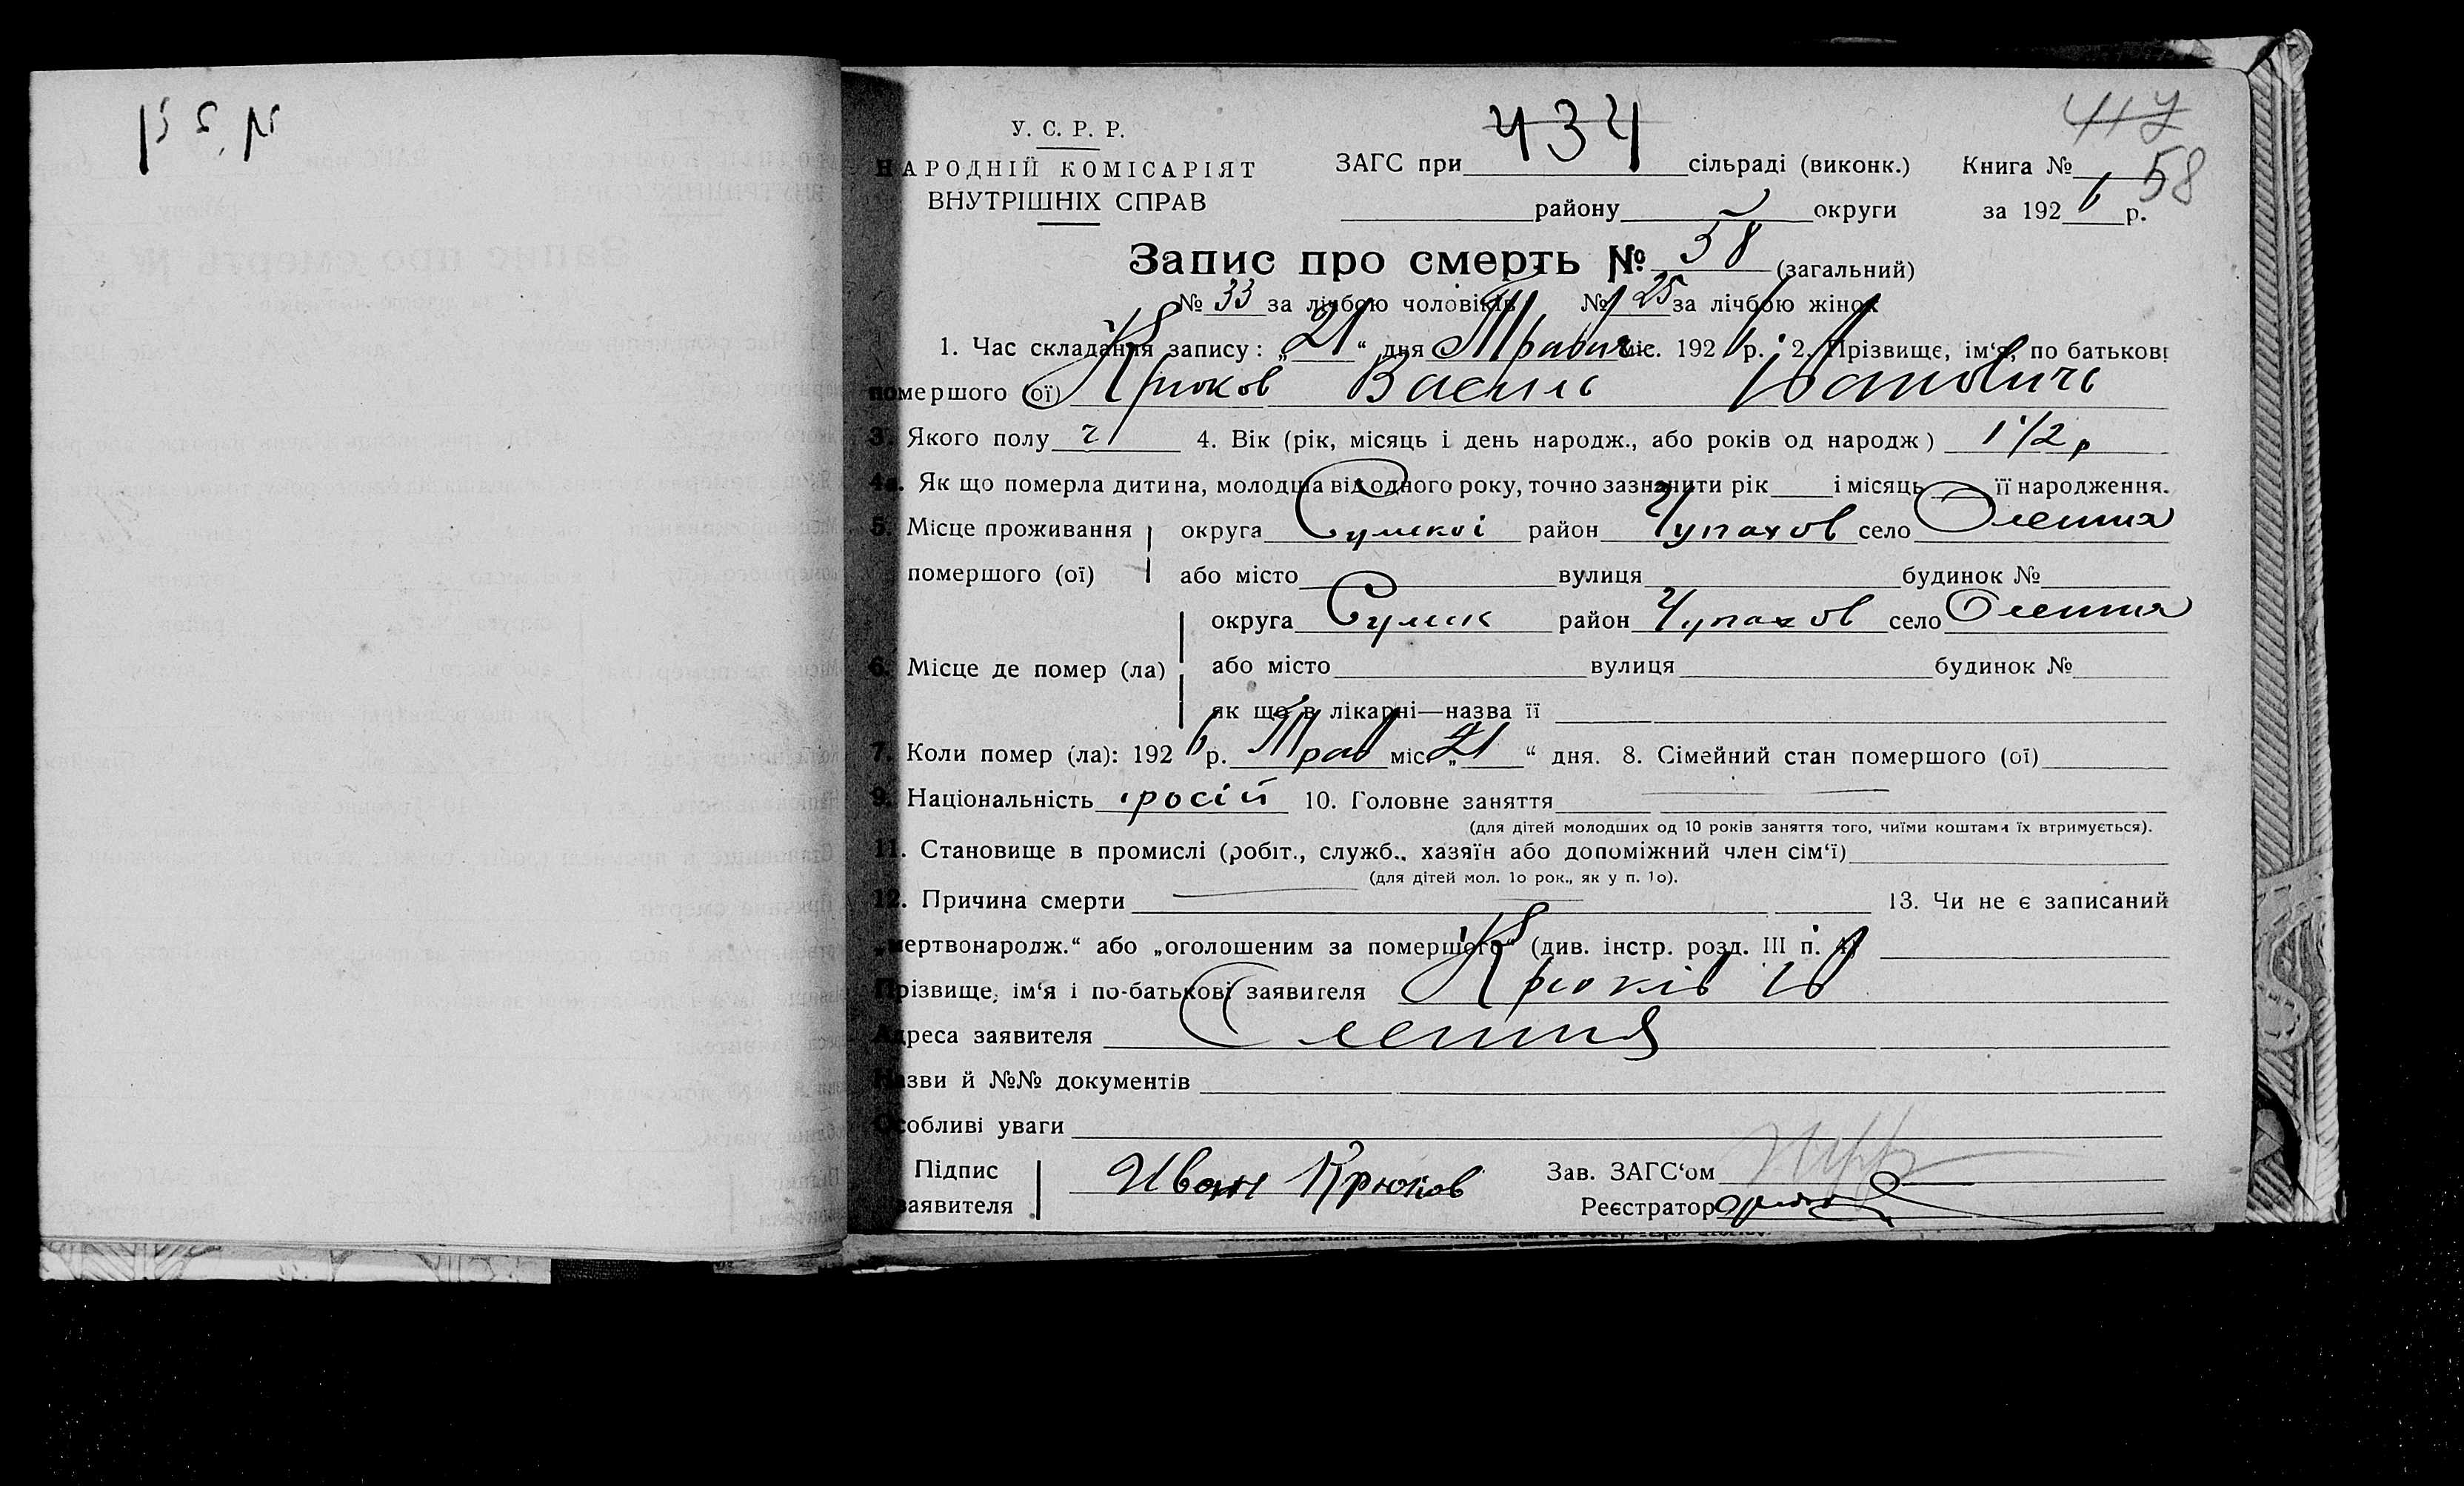 434
417
58
У. С. Р. Р.
НАРОДНІЙ КОМІСАРІЯТ
ВНУТРІШНІХ СПРАВ
ЗАГС при сільраді (виконк.) Книга №
району округи за 1926 р.
Запис про смерть № 58 (загальний)
№ 33 за лічбою чоловіків № 25 за лічбою жінок
1. Час складання запису: „21“ дня Травня міс. 1926 р. 2. Прізвище, ім‘я, по батькові
помершого (ої) Крюков Василь Іванович
3. Якого полу ч 4. Вік (рік, місяць і день народж., або років од народж) 1 1/2 р
4а. Як що померла дитина, молодша від одного року, точно зазначити рік і місяць її народження.
5. Місце проживання округа Сумскоі район Чупахов село Олешня
помершого (ої) або місто вулиця будинок №
округа Сумск район Чупахов село Олешня
6. Місце де помер (ла) або місто вулиця будинок №
як що в лікарні—назва її
7. Коли помер (ла): 1926 р. Трав міс. „21“ дня. 8. Сімейний стан помершого (ої)
9. Національність росій 10. Головне заняття
(для дітей молодших од 10 років заняття того, чиїми коштами їх втримується).
11. Становище в промислі (робіт., служб., хазяїн або допоміжний член сім‘ї)
(для дітей мол. 1о рок., як у п. 1о).
12. Причина смерти 13. Чи не є записаний
„мертвонародж.“ або „оголошеним за помершого“ (див. інстр. розд. III п. 4)
Прізвище, ім‘я і по-батькові заявителя Крюків Ів
Адреса заявителя Олешня
Назви й №№ документів
Особливі уваги
Підпис заявителя Иван Крюков Зав. ЗАГС‘ом
Реєстратор